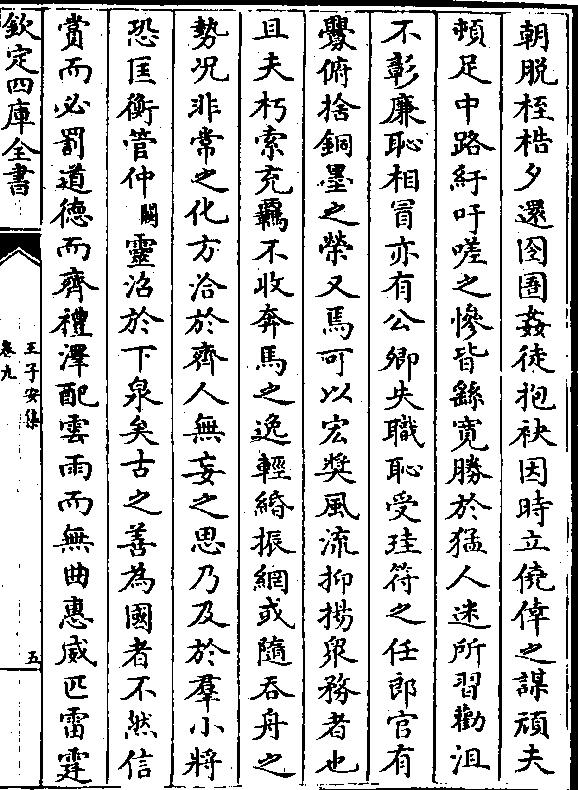 朝脫桎梏夕還囹圄姦徒抱袂因時立僥倖之謀頑夫
頓足中路紆吁嗟之慘皆繇寛勝於猛人迷所習勸沮
不彰廉恥相冒亦有公卿失職恥受珪符之任郎官有
釁俯捨銅墨之榮又焉可以宏奬風流抑揚衆務者也
且夫朽索充羈不收奔馬之逸輕緍振網或隨吞舟之
勢况非常之化方洽於齊人無妄之思乃及於羣小將
恐匡衡管仲闕靈沿於下泉矣古之善為國者不然信
賞而必罰道德而齊禮澤配雲雨而無曲惠威匹雷霆
欽定四庫全書
王子安集
卷九
五